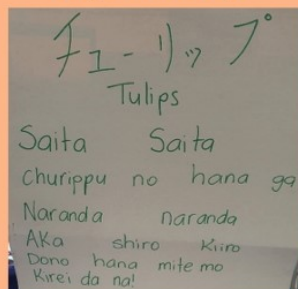 チューリップ
Tulips
Saita Saita
churippu no hana ga
Naranda naranda
Aka shiro Kiiro
Dono hana mite mo
Kirei da na!